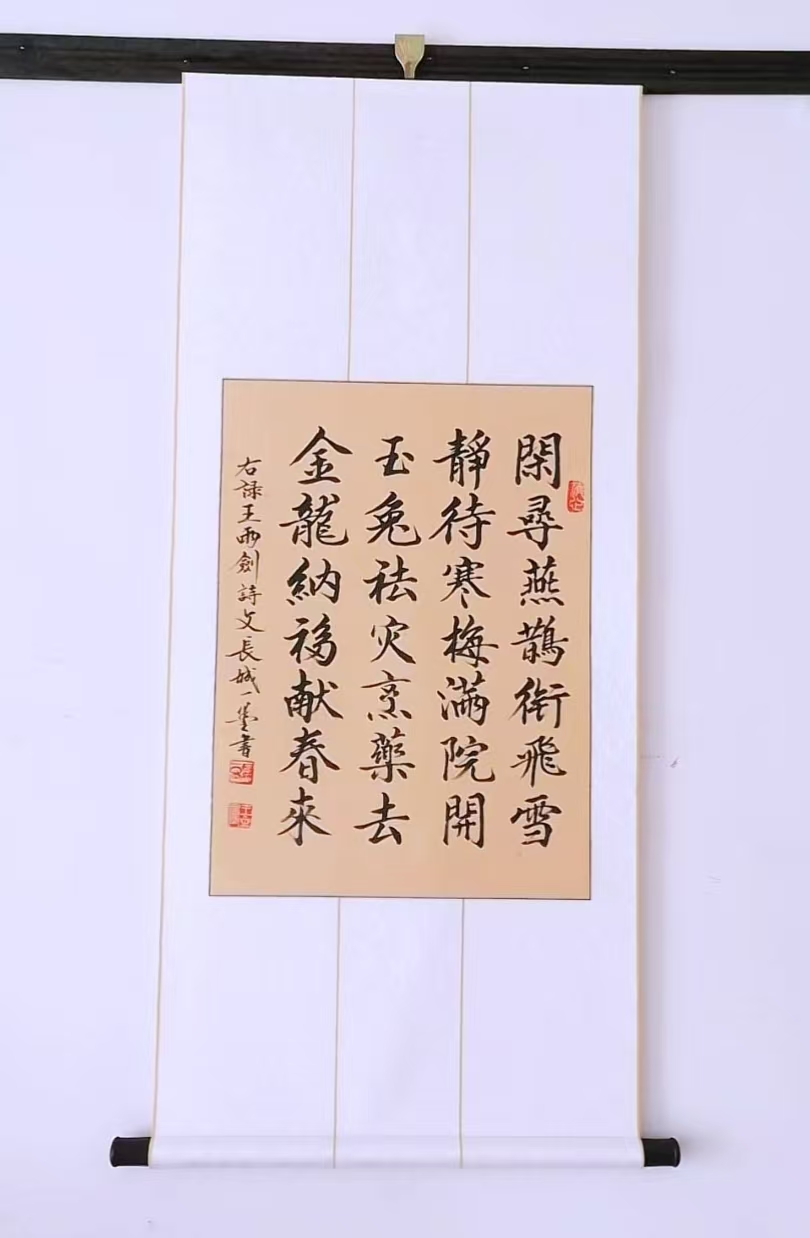 閑尋燕鵲銜飛雪
靜待寒梅滿院開
玉兔祛灾烹藥去
金龍納福献春來
右錄王雨劍詩文長城一墨書